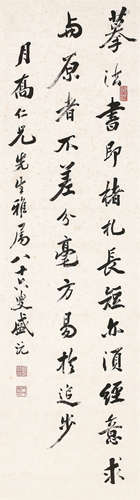 摹法书即楮札長短亦須經意求
与原者不差分毫方易於追步
月喬仁兄先生雅屬八十六叟盛沅